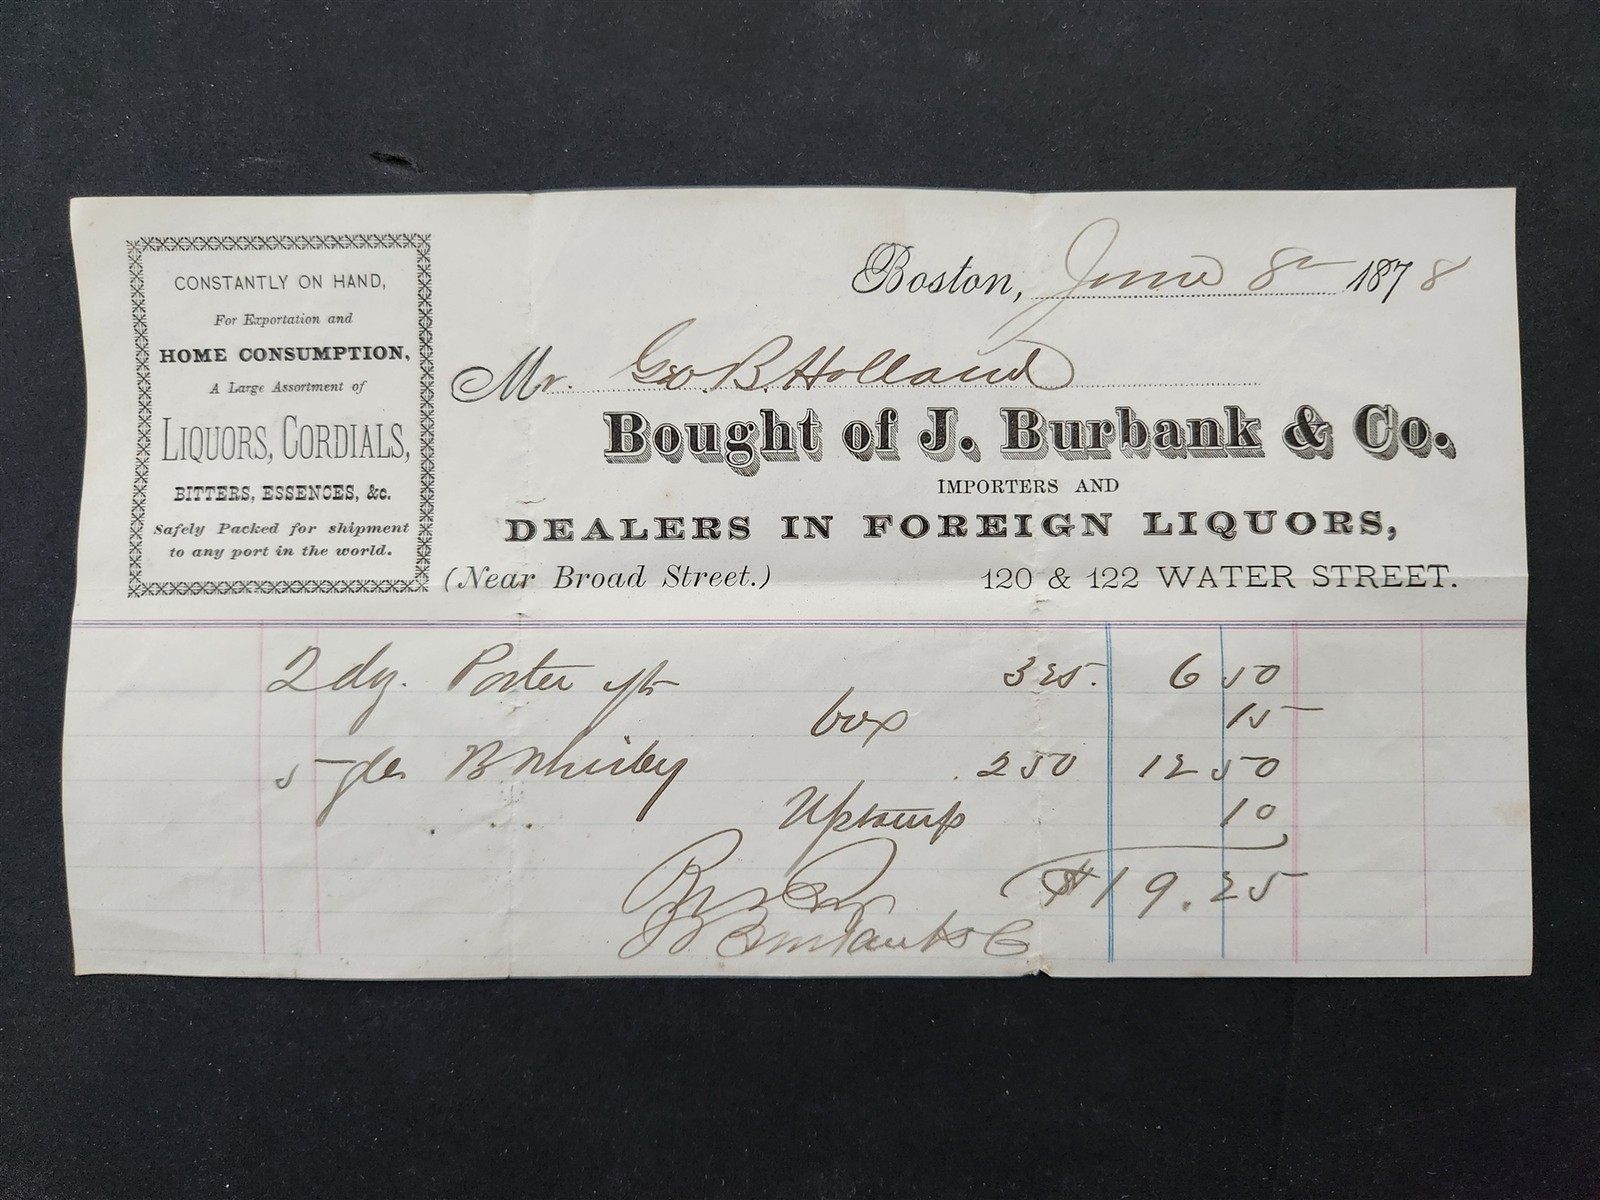 CONSTANTLY ON HAND,
For Exportation and
HOME CONSUMPTION,
A Large Assortment of
LIQUORS, CORDIALS,
BITTERS, ESSENCES, &c.
Safely Packed for shipment
to any port in the world.
Boston, June 8 1878
Mr. Geo. B. Holland
Bought of J. Burbank & Co.
IMPORTERS AND
DEALERS IN FOREIGN LIQUORS,
(Near Broad Street.) 120 & 122 WATER STREET.
2 dz. Porter 325. 6 50
box 15
5 gls B Whiskey 250 12 50
10
$19.25
J Burbank & Co